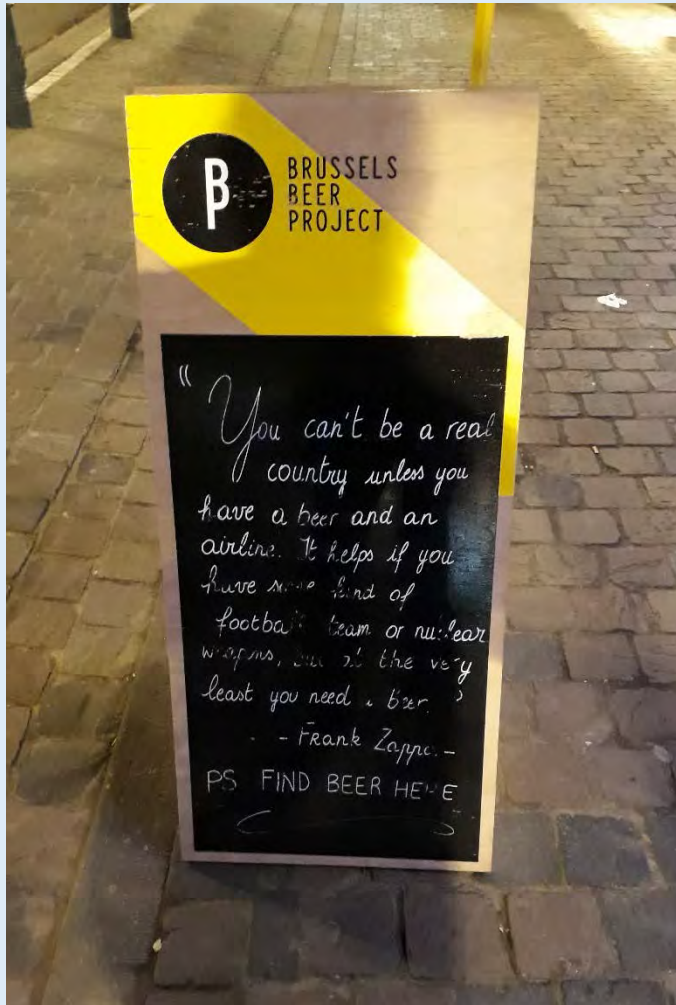 BP
BRUSSELS
BEER
PROJECT
"You can't be a real
country unless you
have a beer and an
airline. It helps if you
have some kind of
football team or nuclear
weapons, but at the very
least you need a beer."
- Frank Zappa -
PS FIND BEER HERE